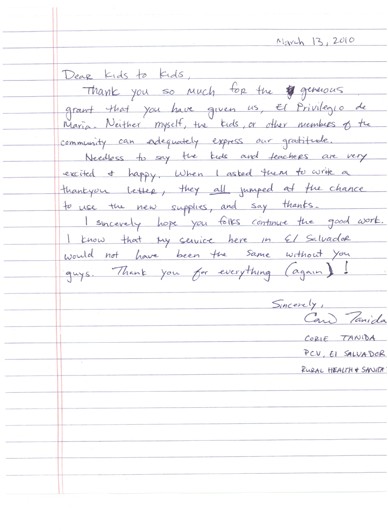 March 13, 2010
Dear Kids to Kids,
Thank you so much for the generous
grant that you have given us, El Privilegio de
Maria. Neither myself, the kids, or other members of the
community can adequately express our gratitude.
Needless to say the kids and teachers are very
excited & happy. When I asked them to write a
thankyou letter, they all jumped at the chance
to use the new supplies, and say thanks.
I sincerely hope you folks continue the good work.
I know that my service here in El Salvador
would not have been the same without you
guys. Thank you for everything (again)!
Sincerely,
Tanida
CORIE TANIDA
PCV, EL SALVADOR
RURAL HEALTH & SANITA